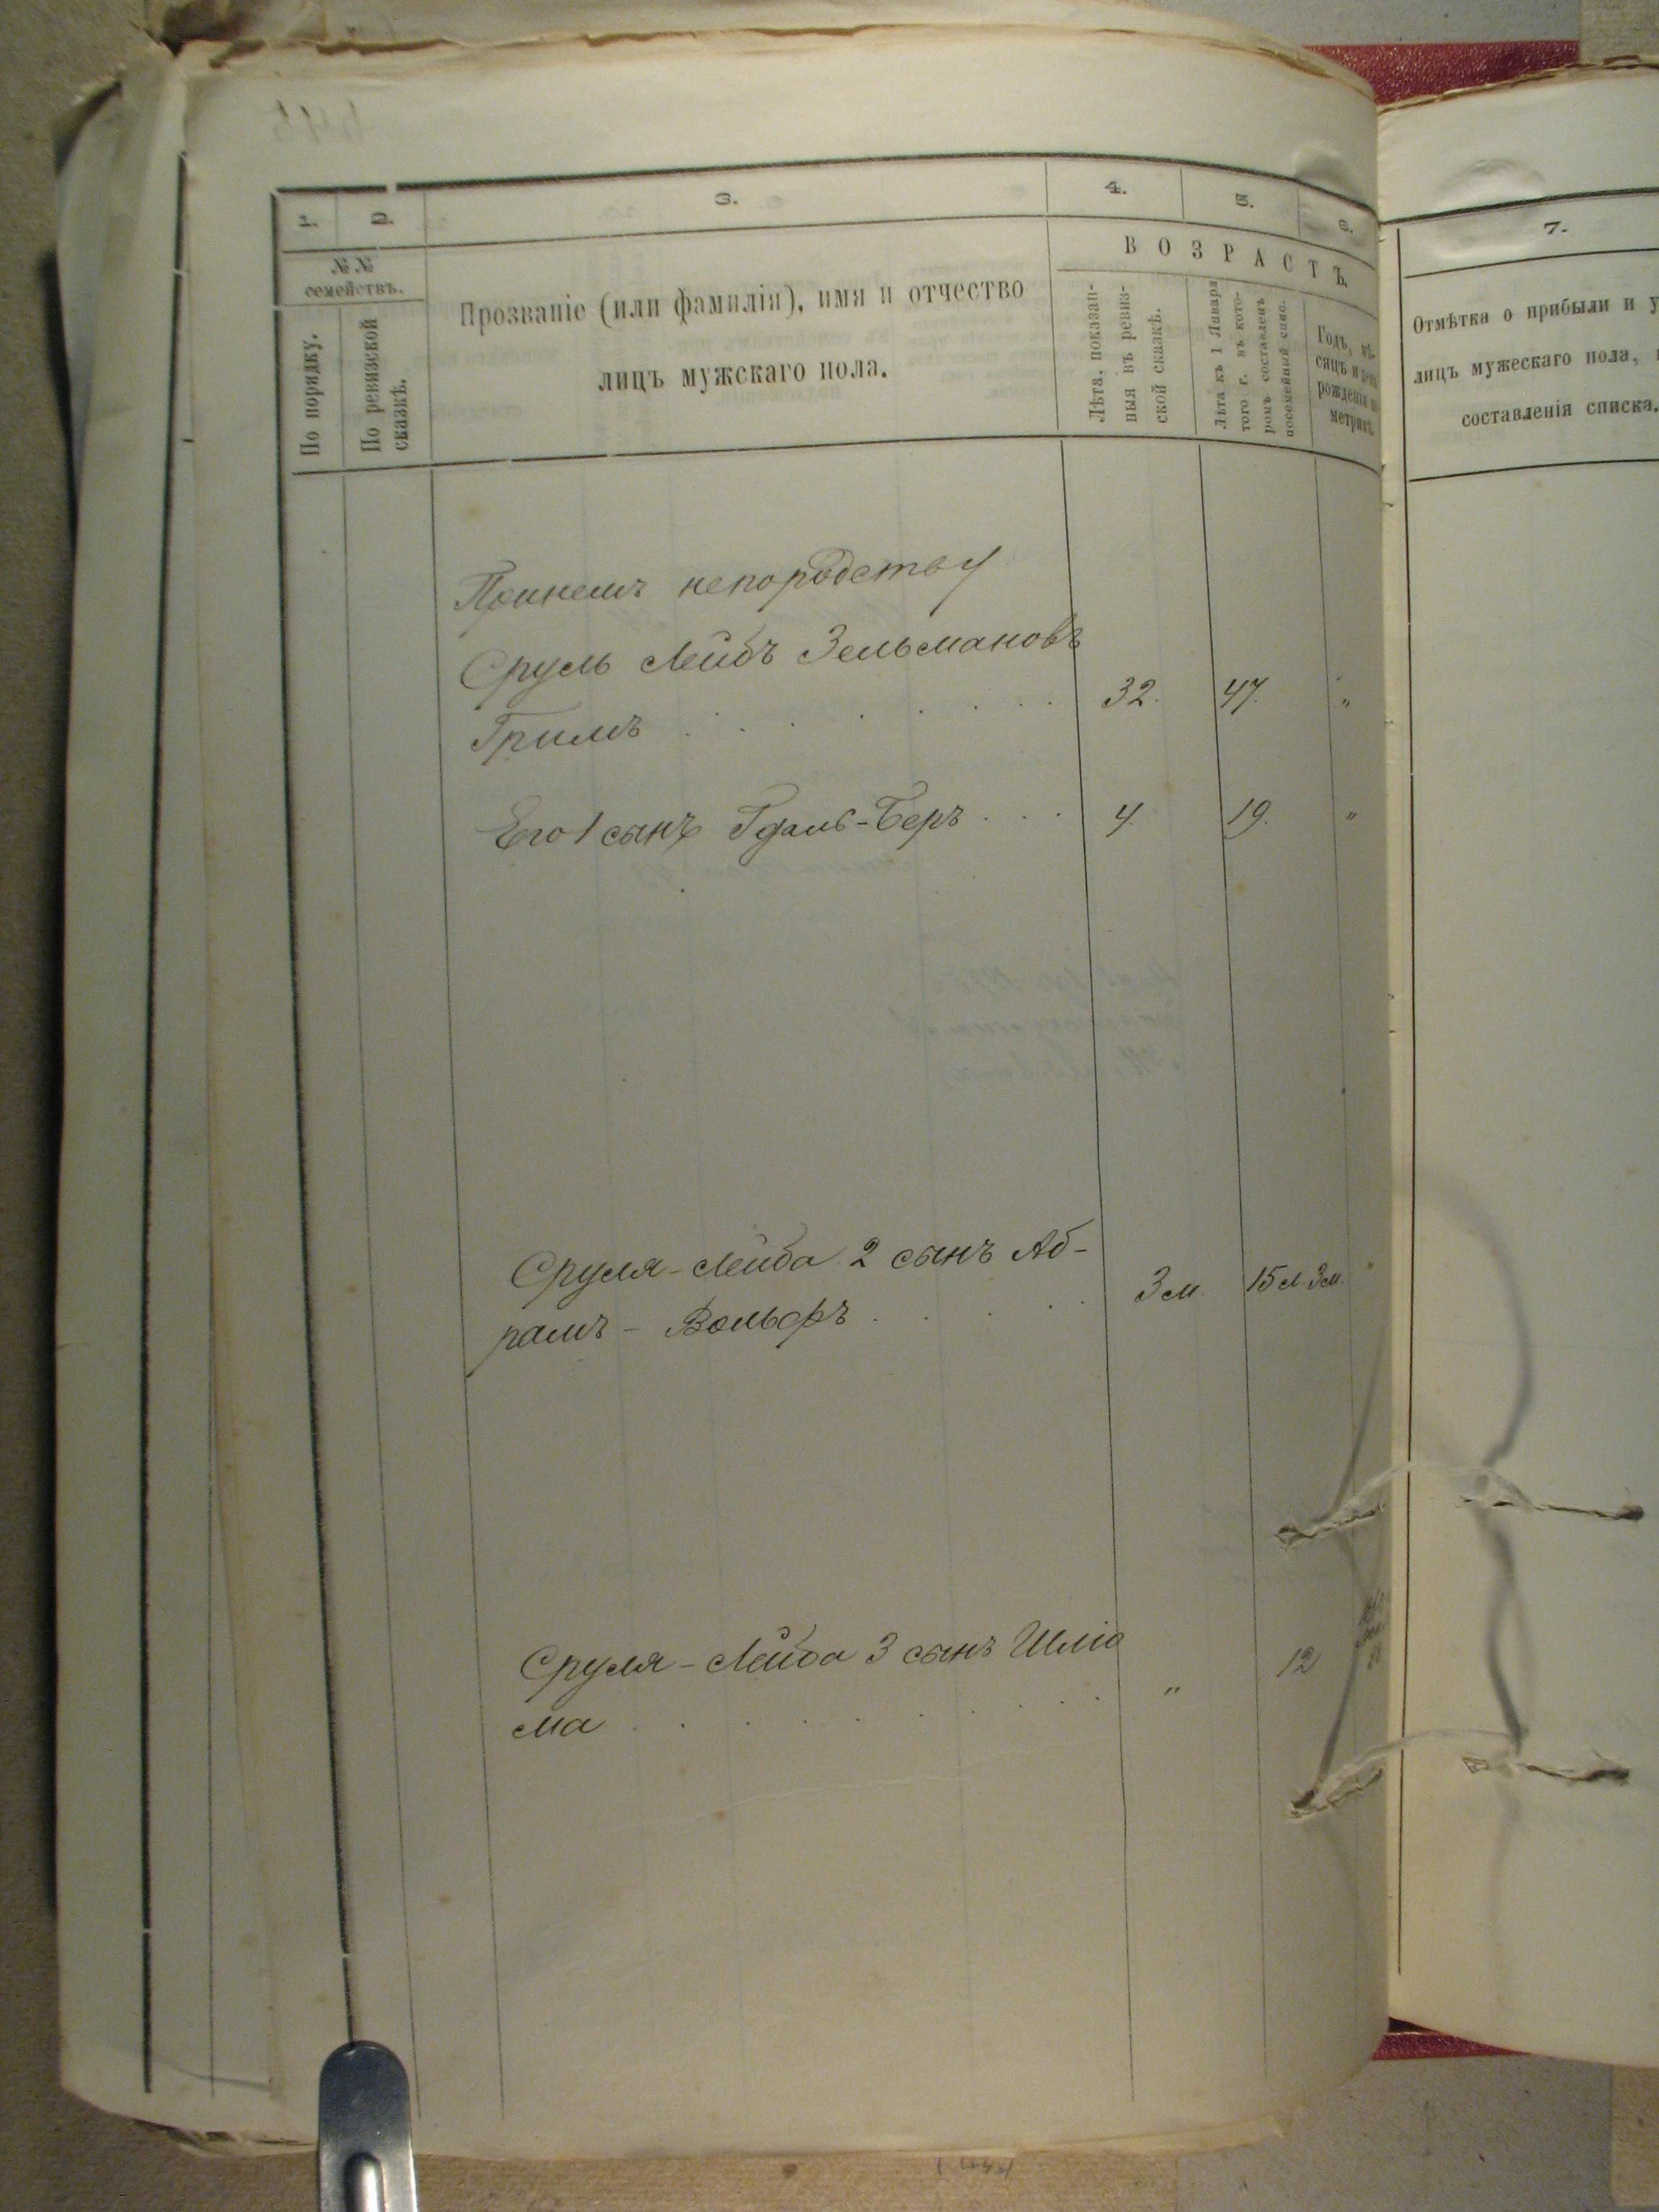 1.
2.
3.
4.
5.
6.
7.
№ №
семействъ.
По порядку.
По ревизской
сказкѣ.
Прозваніе (или фамилія), имя и отчество
лицъ мужскаго пола.
ВОЗРАСТЪ.
Лѣта, показан-
ныя въ ревиз-
ской сказкѣ.
Лѣта къ 1 Января
того г. въ кото-
ромъ составленъ
посемейный спис.
Годъ, мѣ-
сяцъ и день
рожденія по
метрикѣ.
Отмѣтка о прибыли и у
лицъ мужескаго пола,
составленія списка.
непородству
Сруль Лейбъ Зельмановъ
Гримъ . . . . . . . 32. 47. "
Его 1 сынъ Гдаль-Беръ . . . 4. 19. "
Сруля-Лейба 2 сынъ Аб-
рамъ - Вольфъ . . . . . 3 м. 15 л. 3 м. "
Сруля-Лейба 3 сынъ Шліо
ма . . . . . . . . . " 12